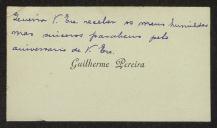 V. Exa. receber os meus humildes
mas sinceros parabens pelo
aniversario de V. Exa.
Guilherme Pereira